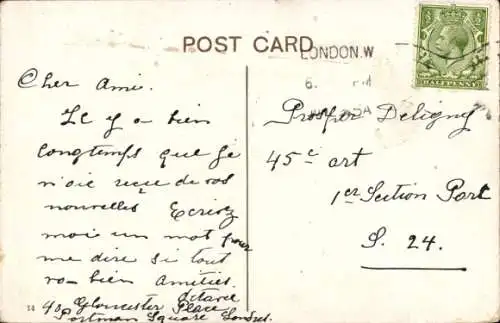 POST CARD
LONDON.W
6.
HALFPENNY
Cher Ami.
Il y a bien
longtemps que je
n'aie reçue de vos
nouvelles Ecrivez
moi un mot pour
me dire si tout
va bien Amitiés.
40 Gloucester Place
Portman Square Londres.
Prosper Deligny
45e art
1er Section Port
S. 24.